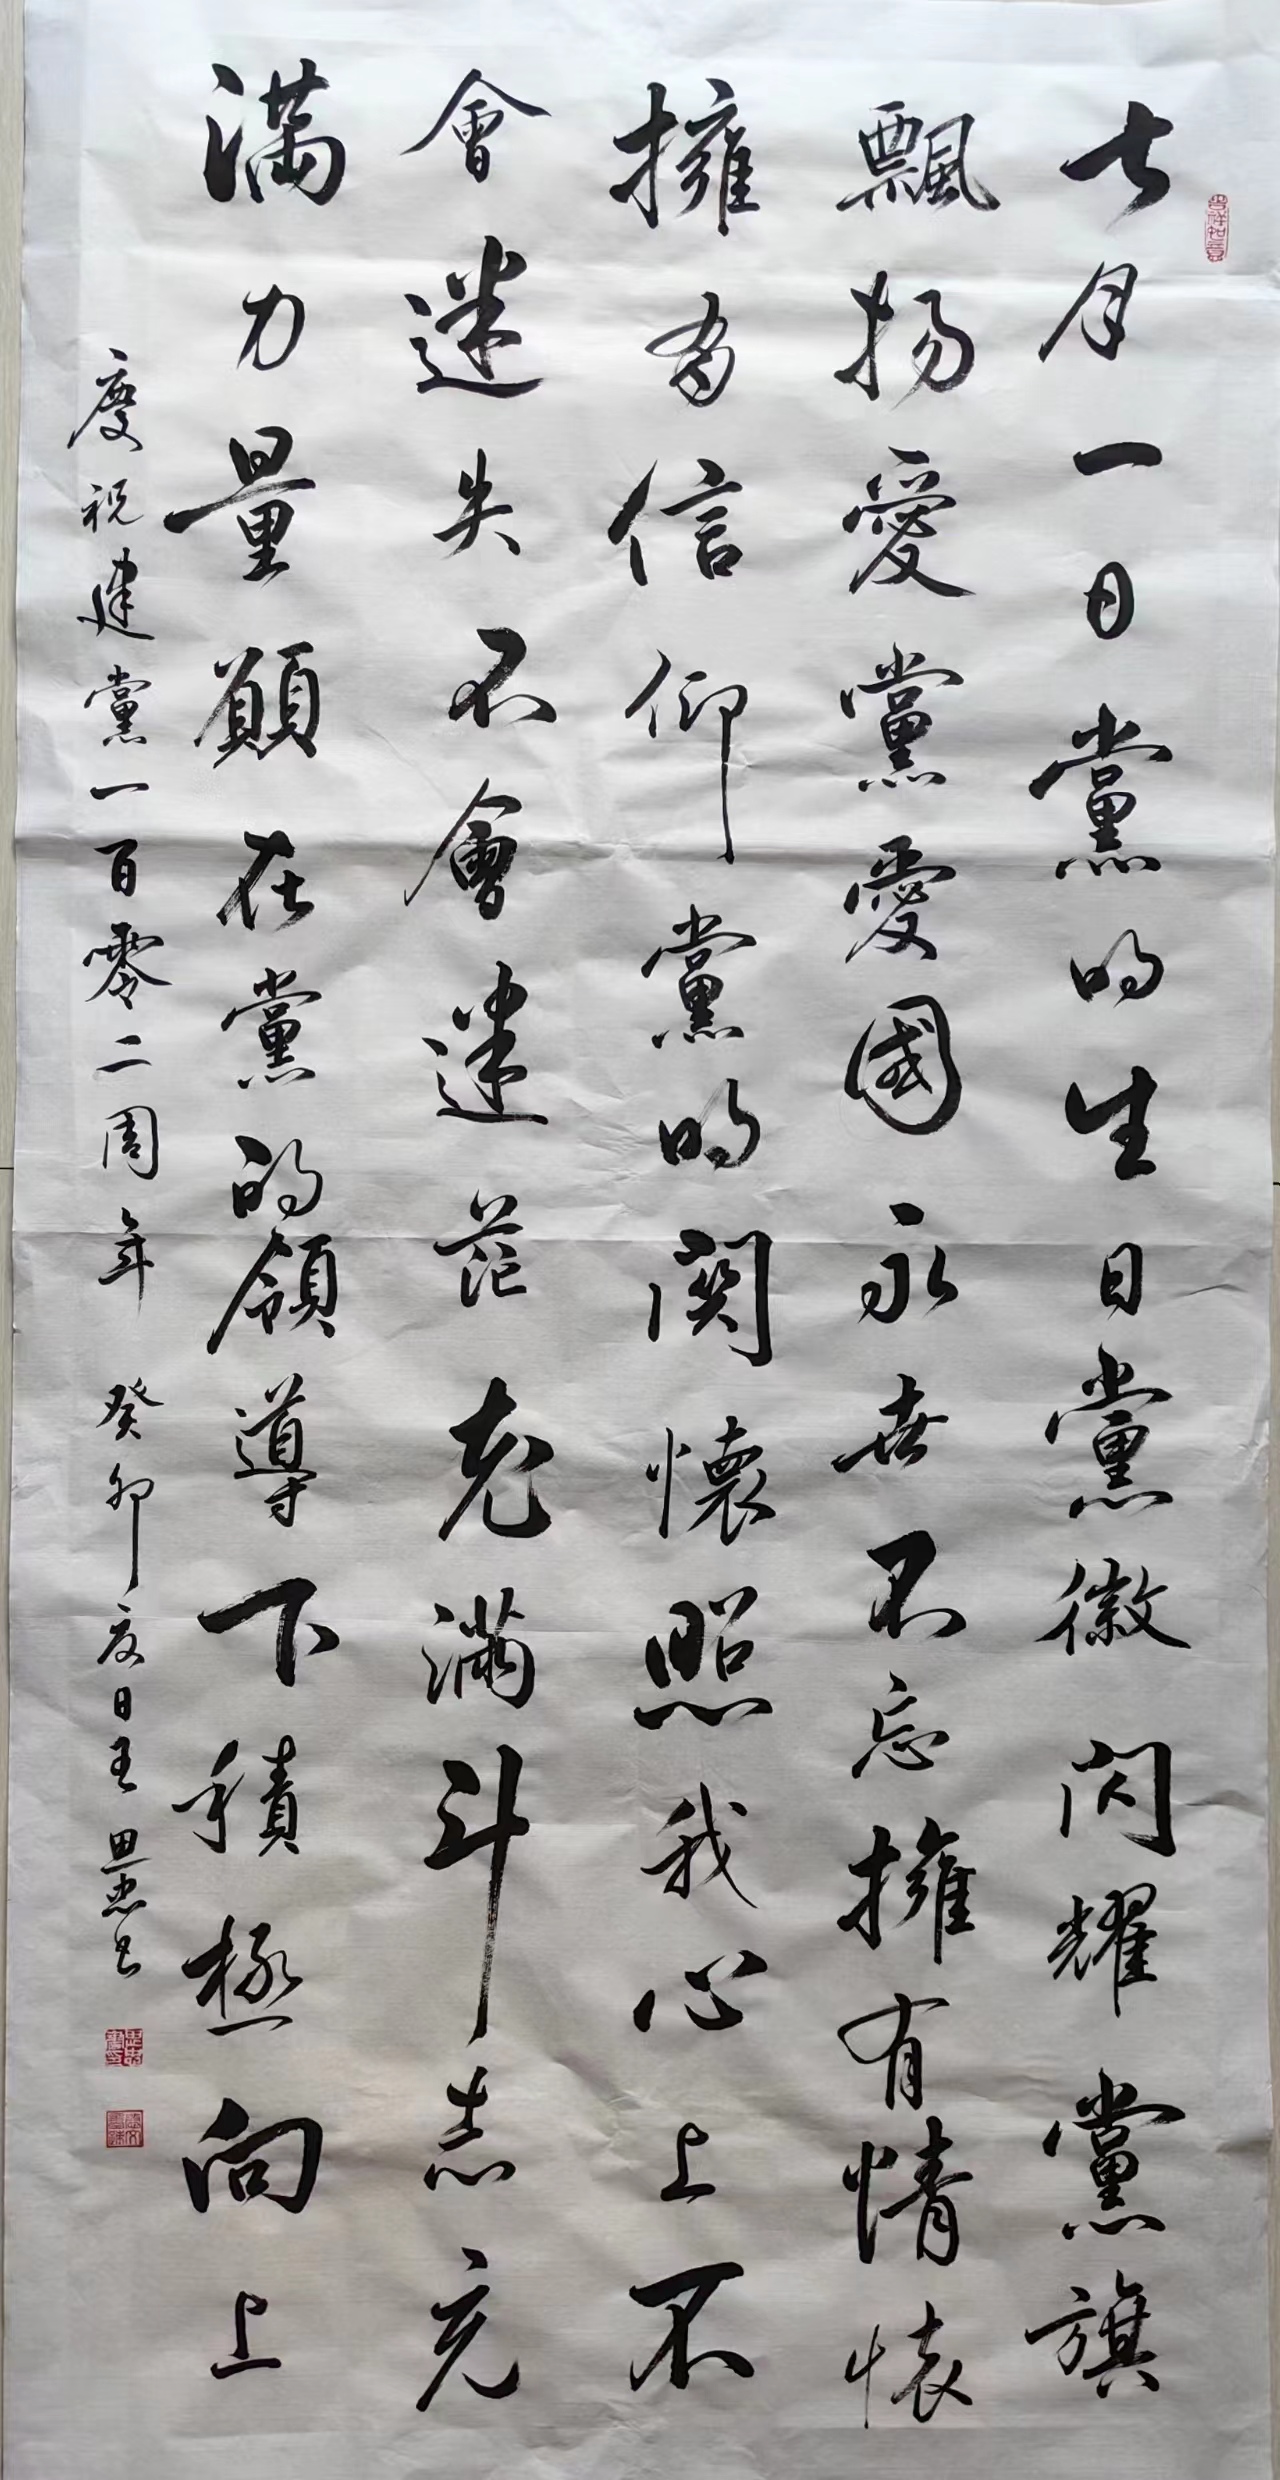 七月一日黨的生日黨徽閃耀黨旗
飄揚愛黨愛國永世不忘擁有情懷
擁有信仰黨的関懷照我心上不
會迷失不會迷茫充滿斗志充
滿力量願在黨的領導下積極向上
慶祝建黨一百零二周年 癸卯夏日王思忠书
吉祥如意